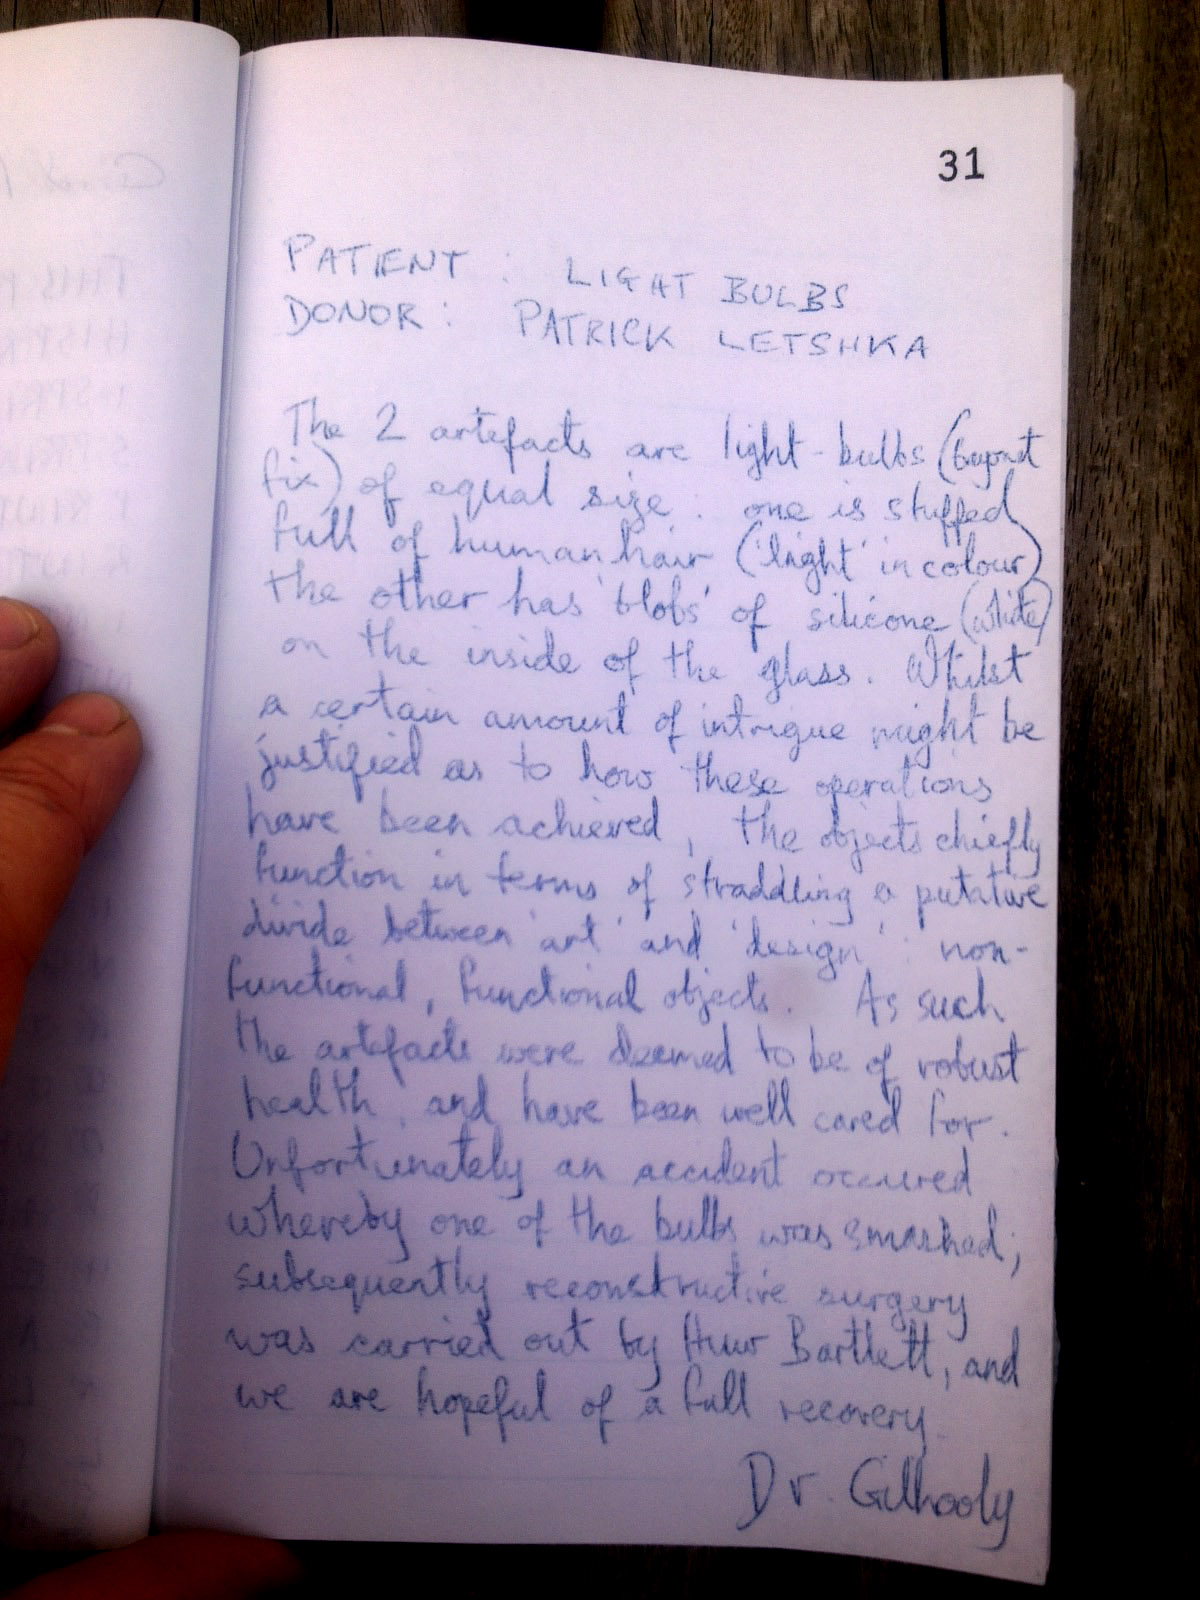 31
PATIENT : LIGHT BULBS
DONOR : PATRICK LETSHKA
The 2 artefacts are light-bulbs (beyond
fix) of equal size : one is stuffed
full of human hair ('light' in colour)
the other has 'blobs' of silicone (white)
on the inside of the glass. Whilst
a certain amount of intrigue might be
justified as to how these operations
have been achieved, the objects chiefly
function in terms of straddling a putative
divide between 'art' and 'design' : non-
functional, functional objects. As such
the artefacts were deemed to be of robust
health, and have been well cared for.
Unfortunately an accident occured
whereby one of the bulbs was smashed;
subsequently reconstructive surgery
was carried out by Huw Bartlett, and
we are hopeful of a full recovery.
Dr. Gilhooly